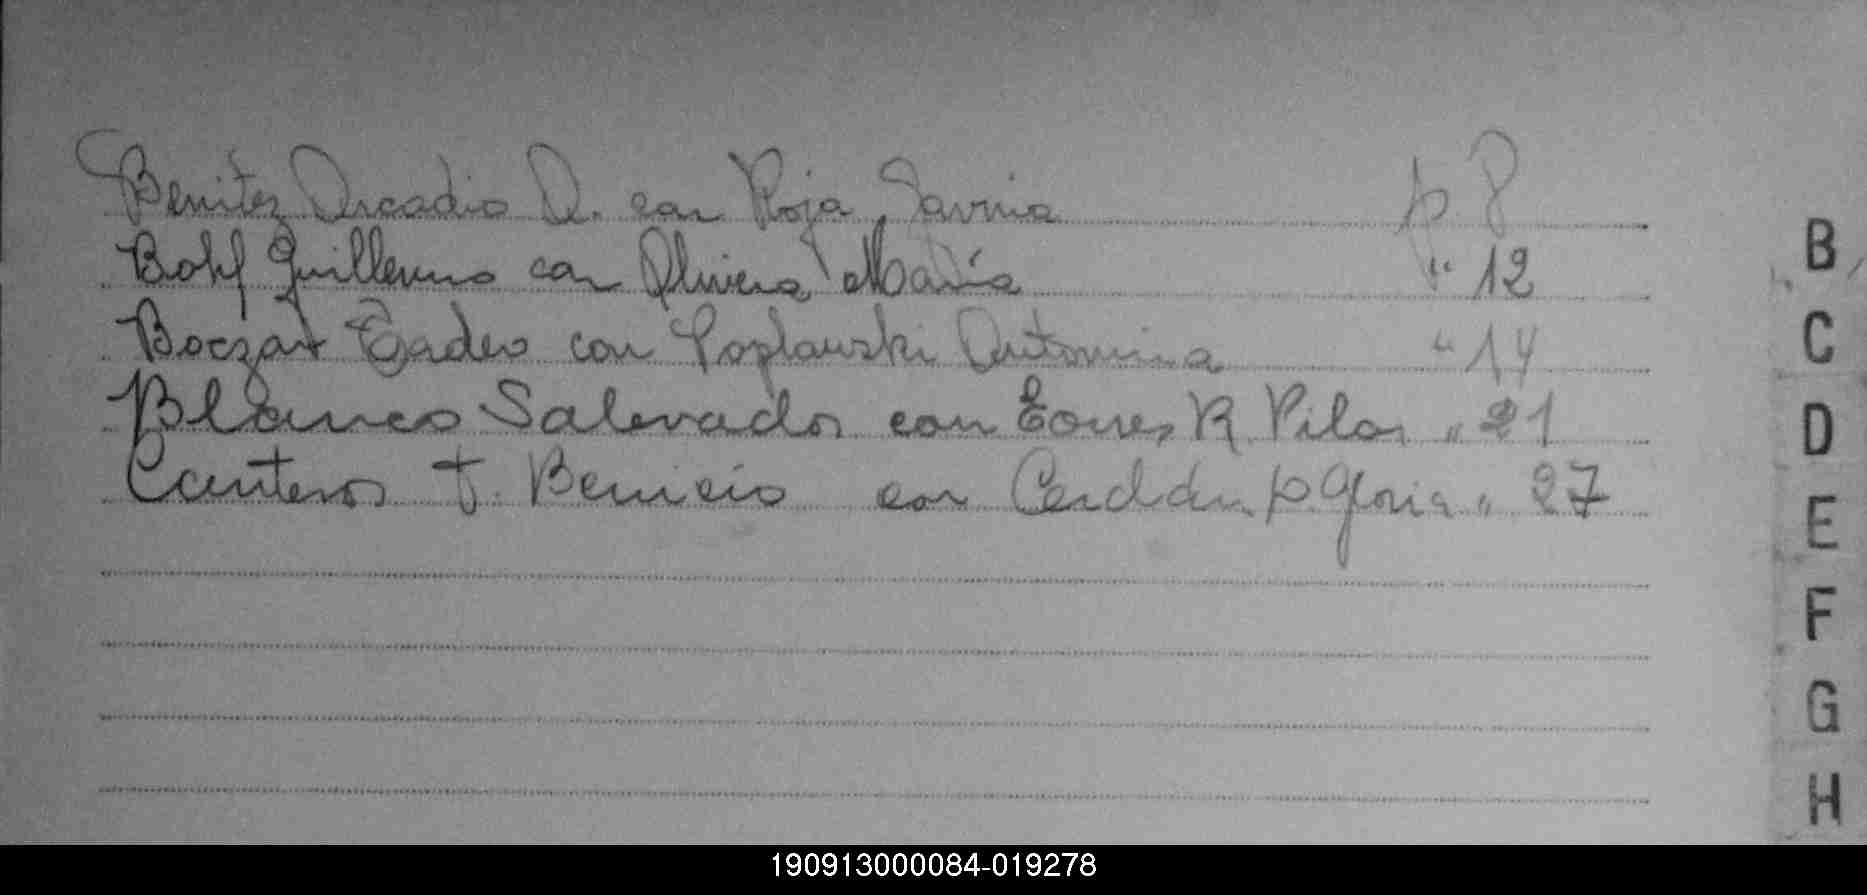 Benitez Arcadio A. con Roja Savina p. 8
Guillermo con Olivera María " 12
Boczar Tadeo con Poplauski Antonina " 14
Blanco Salvador con Torres R. Pilar " 21
Canteros J. Benicio con Cerddn p. Gloria " 27
B
C
D
E
F
G
H
190913000084-019278